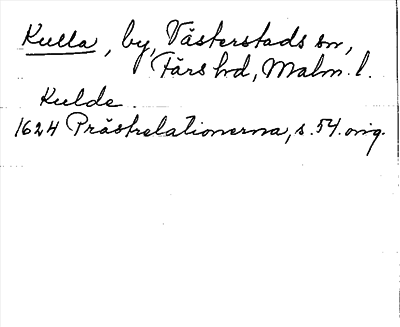 Kulla, by, Västerstads sn,
Färs hd, Malm. l.
Kulde.
1624 Prästrelationerna, s. 54. orig.